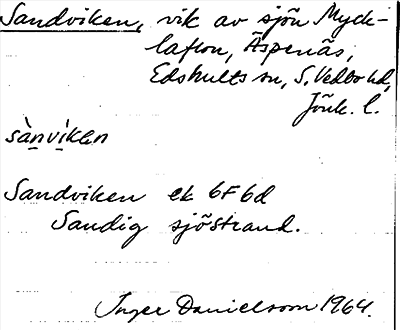 Sandviken, vik av sjön Myck-
laflon, Äspenäs,
Edshults sn, S. Vedbo hd,
Jönk. l.
sànvíken
Sandviken ek 6F6d
Sandig sjöstrand.
Inger Danielsson 1964.